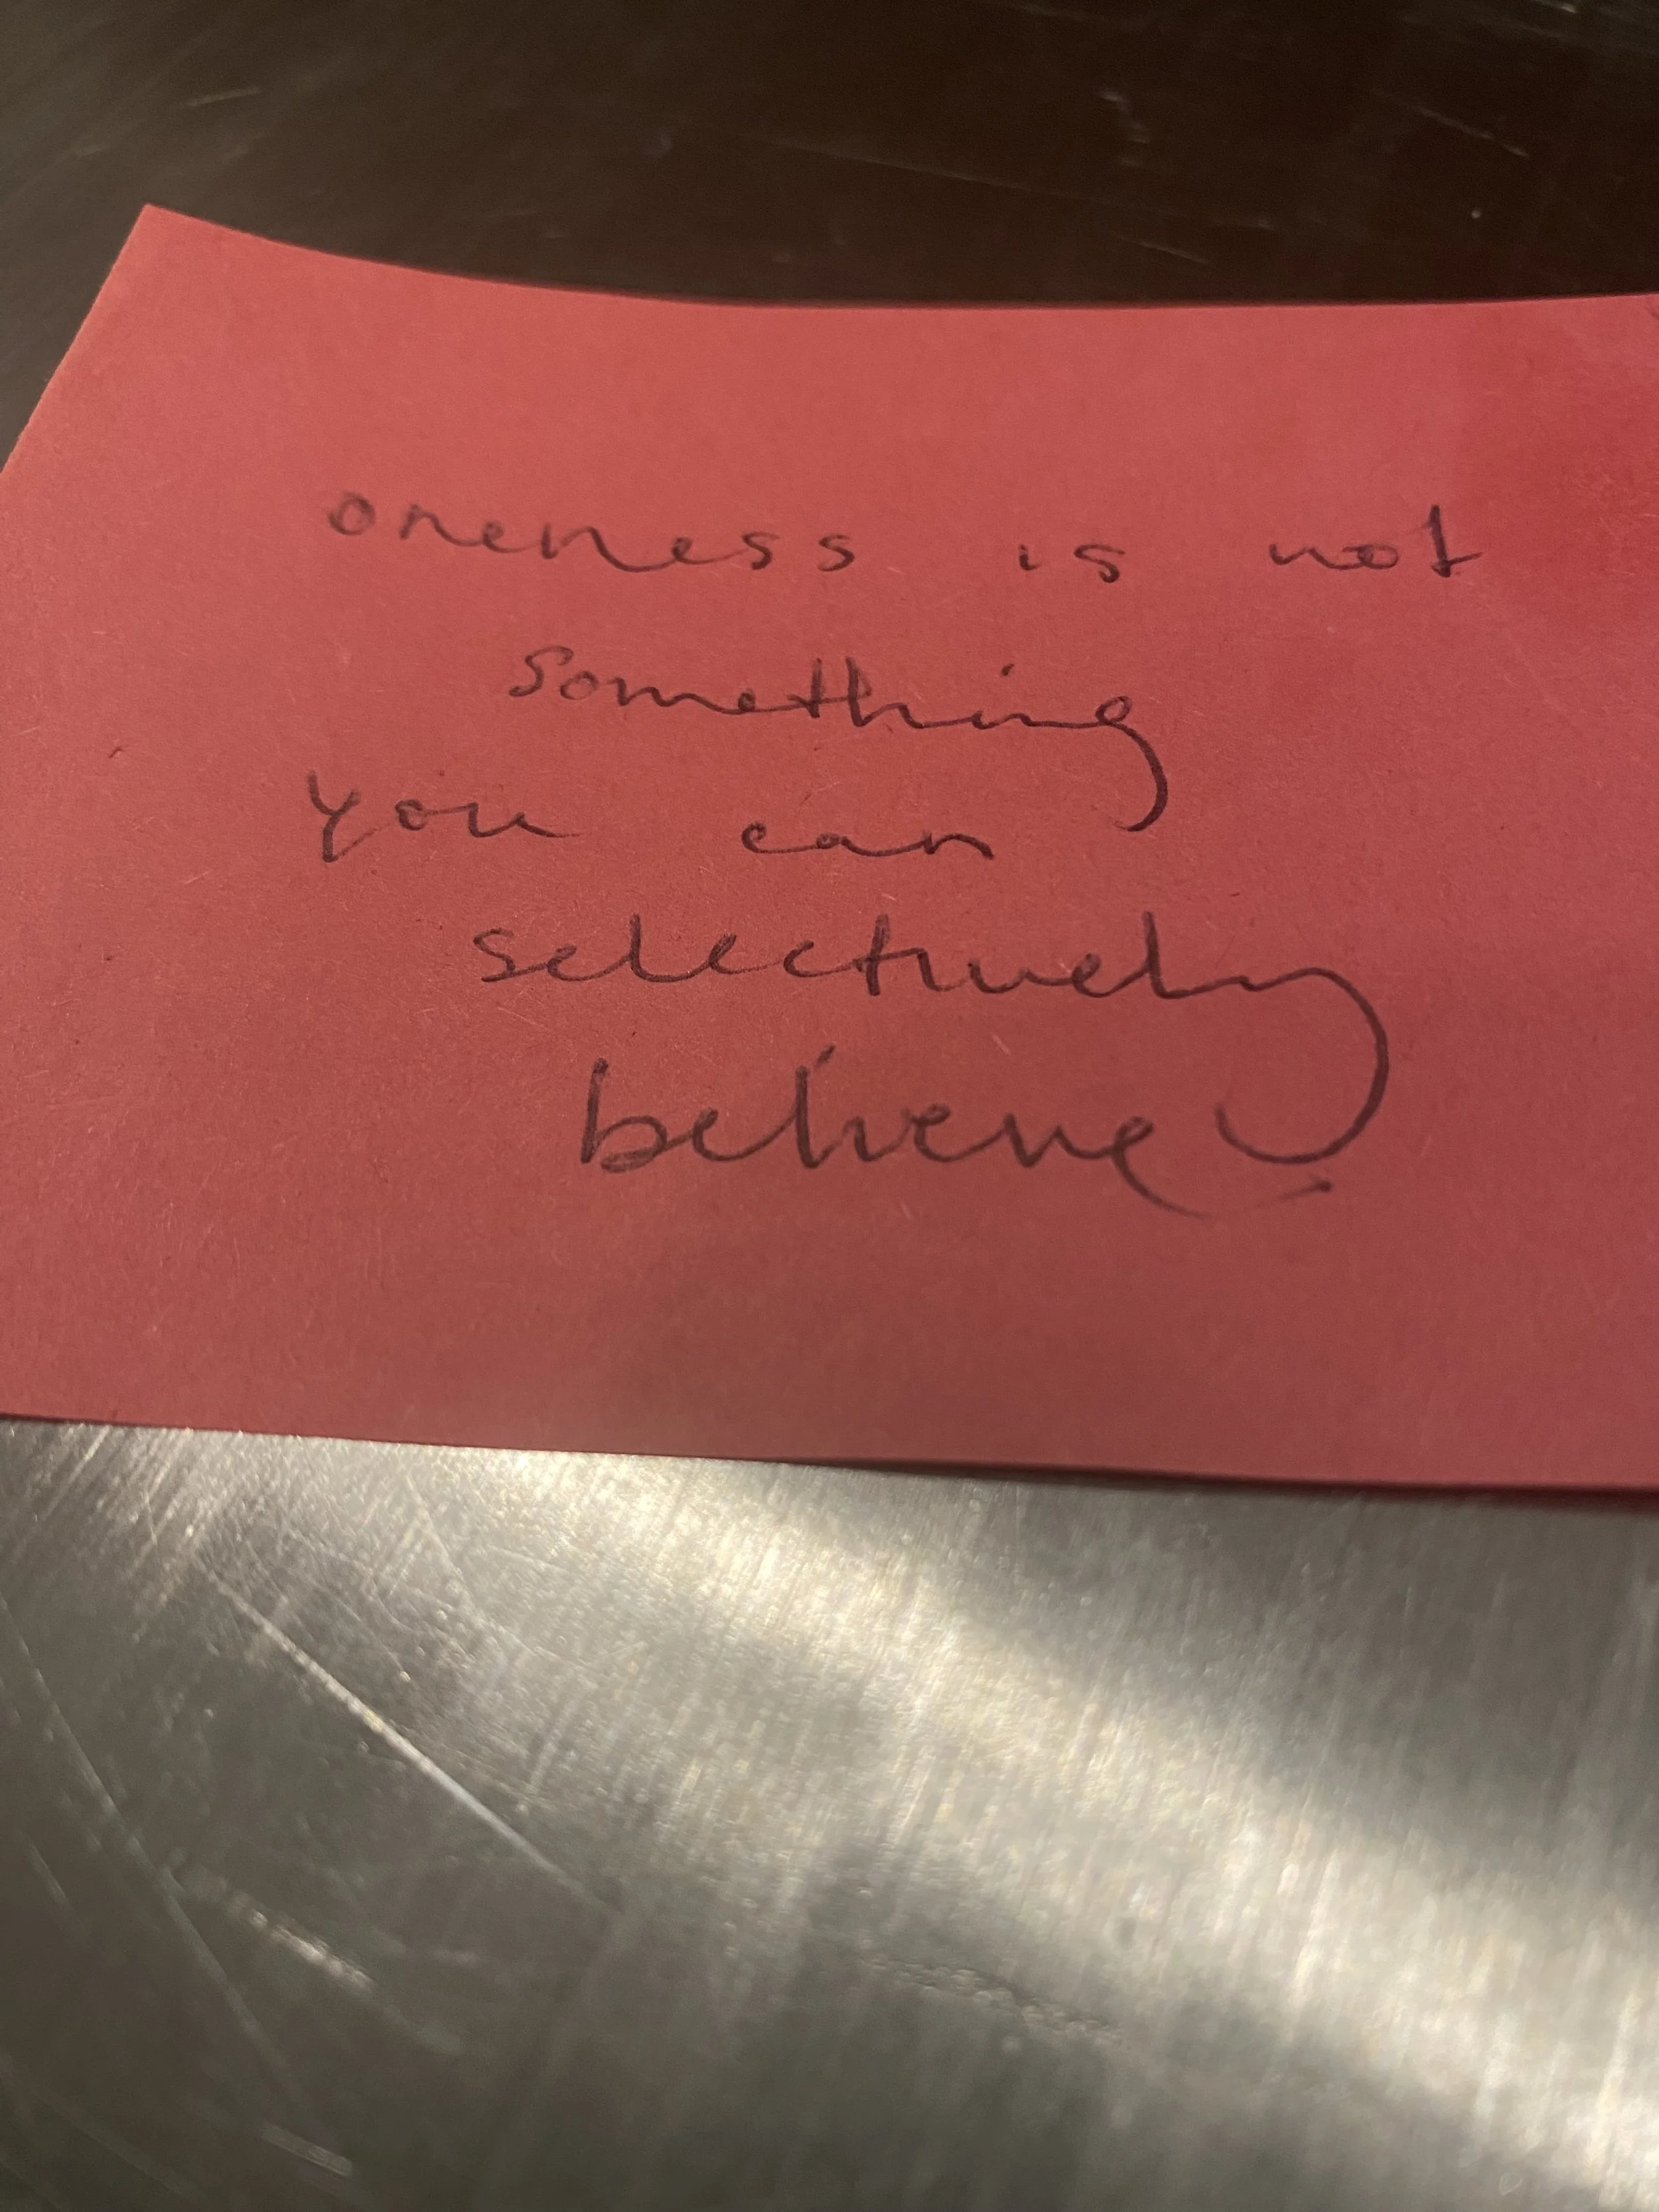 oneness is not
something
you can
selectively
believe